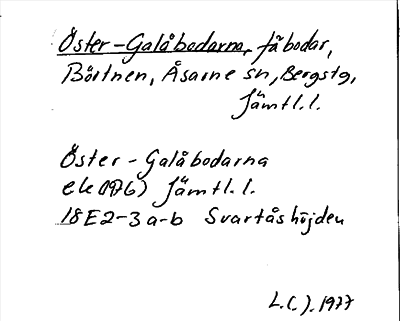 Öster-Galåbodarna, fäbodar,
Börtnen, Åsarne sn, Bergstg,
Jämtl.l.
Öster-Galåbodarna
ek (1976) Jämtl.l.
18E2-3a-b Svartåshöjden
L.C.J. 1977